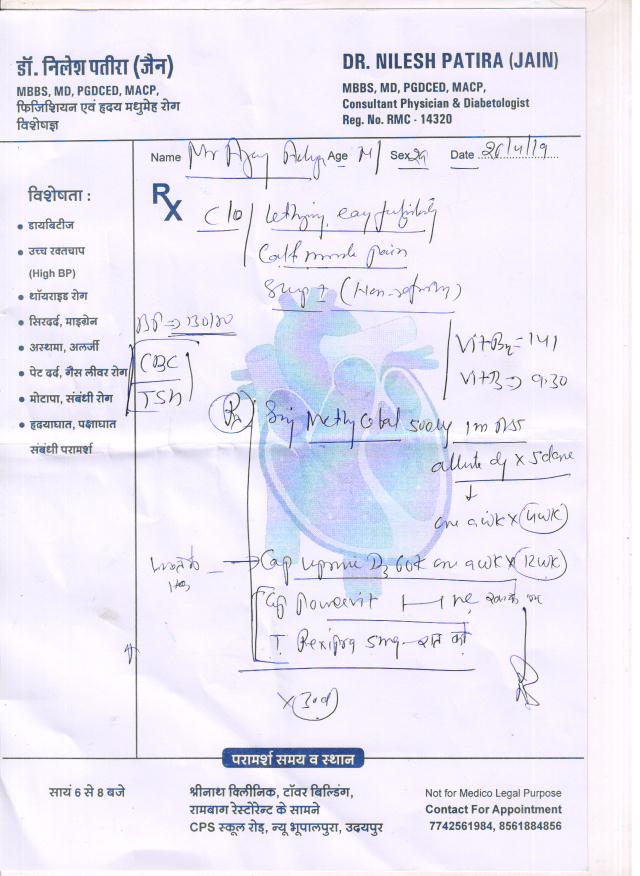 डॉ. निलेश पतीरा (जैन)
MBBS, MD, PGDCED, MACP,
फिजिशियन एवं हृदय मधुमेह रोग
विशेषज्ञ
DR. NILESH PATIRA (JAIN)
MBBS, MD, PGDCED, MACP,
Consultant Physician & Diabetologist
Reg. No. RMC - 14320
Name Mr Ajay Age M/ Sex 29 Date 26/4/19
विशेषता :
• डायबिटीज
• उच्च रक्तचाप
(High BP)
• थॉयराइड रोग
• सिरदर्द, माइग्रेन
• अस्थमा, अलर्जी
• पेट दर्द, गैस लीवर रोग
• मोटापा, संबंधी रोग
• हृदयाघात, पक्षाघात
संबंधी परामर्श
Rx
C/o
Calf muscle pain
BP => 130/80
CBC
TSH
Vit B12 = 141
Vit D => 9.30
Rx Inj Methylcobal 1m
alternate day x 5 dose
one a wk x 4wk
Cap D3 60k one a wk x 12wk
Cap
T. 5mg - रात को
x 30d
परामर्श समय व स्थान
सायं 6 से 8 बजे
श्रीनाथ क्लिीनिक, टॉवर बिल्डिंग,
रामबाग रेस्टोरेन्ट के सामने
CPS स्कूल रोड़, न्यू भूपालपुरा, उदयपुर
Not for Medico Legal Purpose
Contact For Appointment
7742561984, 8561884856